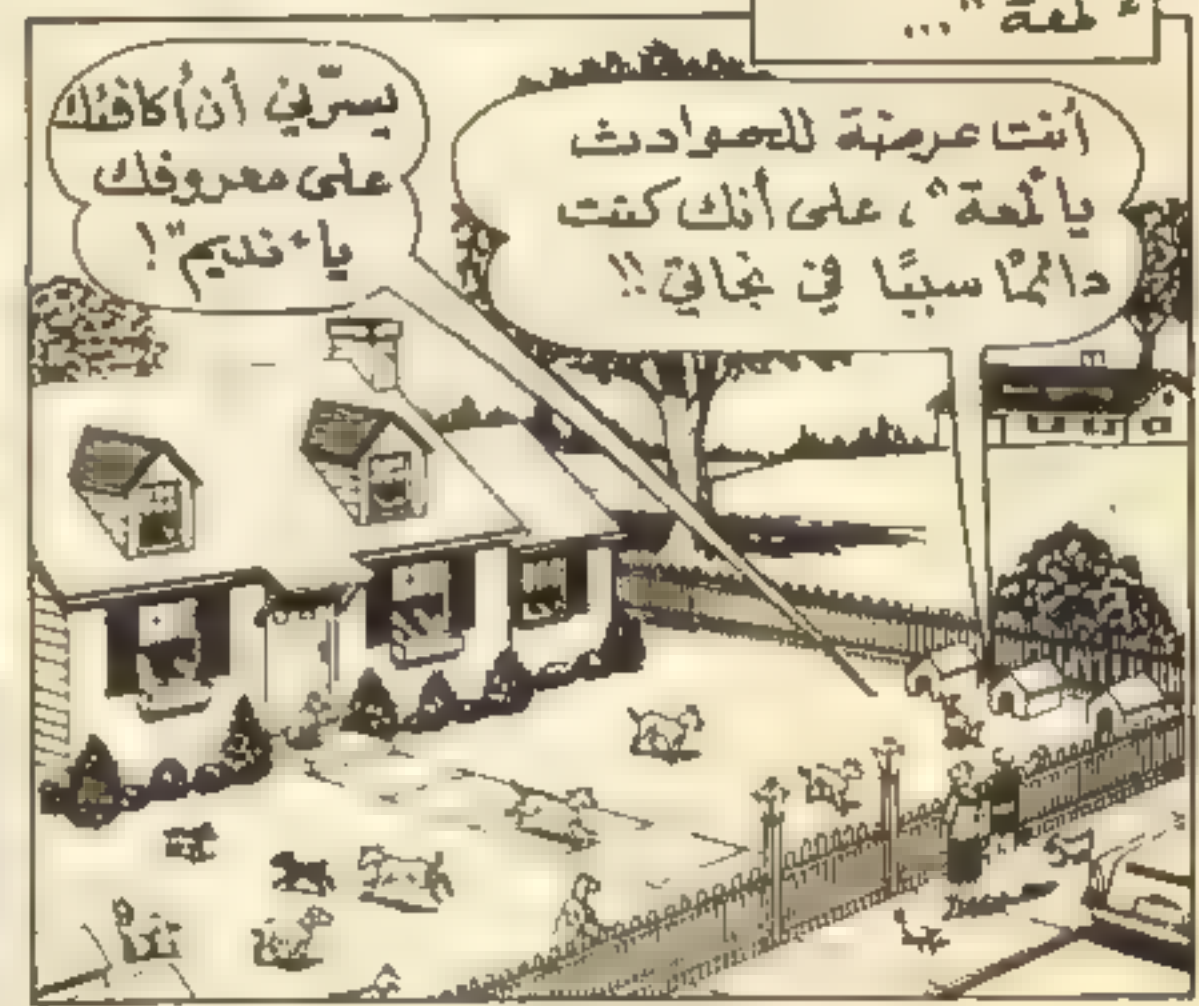 لمعة "...
أنت عرضة للحوادث
يا "لمعة"، على أنك كنت
دائمًا سببًا في نجاتي !!
يسرّني أن أكافئك
على معروفك
يا "نديم" !